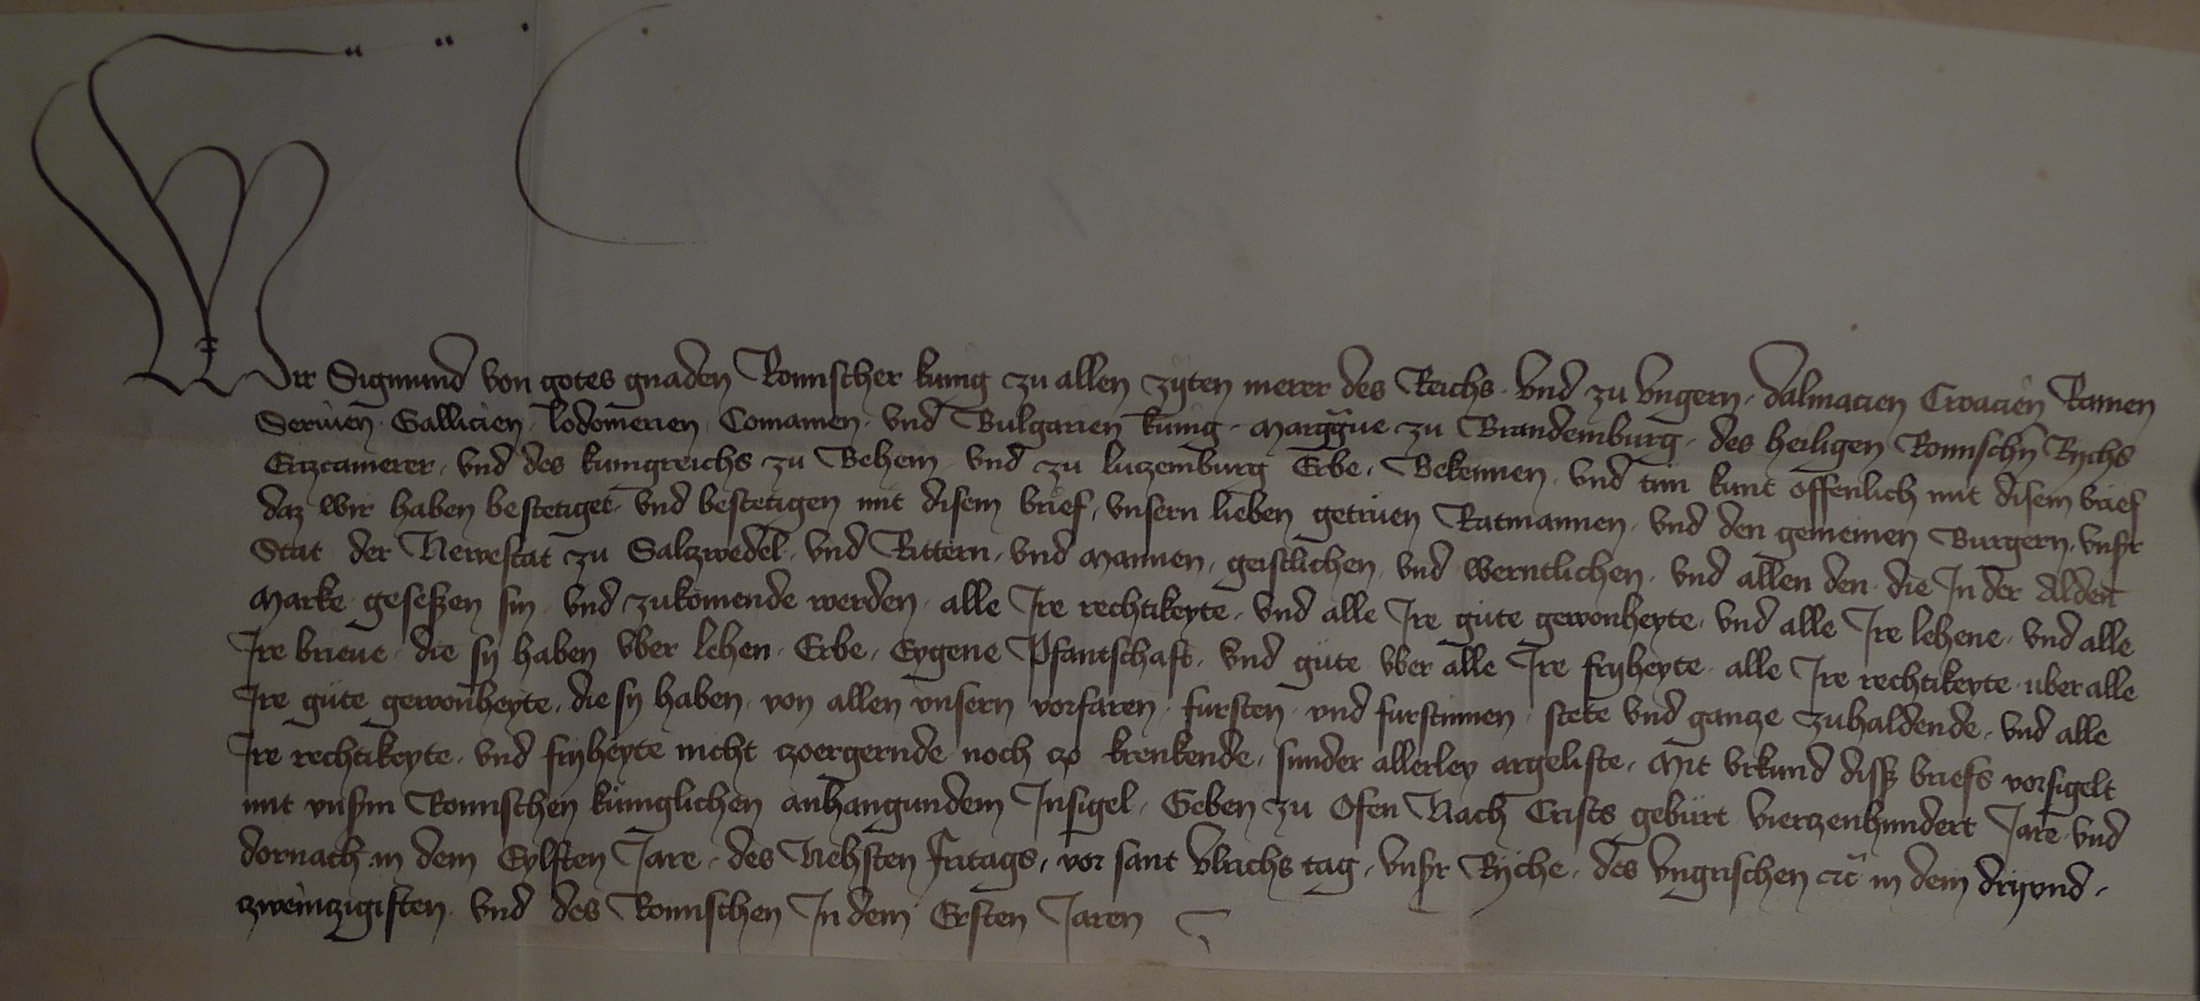 Wir Sigmund von gotes gnaden Romischer kunig zu allen zyten merer des Reichs vnd zu vngern, dalmacien Croacien Ramen
Seruien Gallicien lodomerien Comanien vnd Bulgarien kunig marggraue zu Brandemburg des heiligen Romischn Rychs
Ertzcamerer vnd des kunigreichs zu Behem vnd zu lutzemburg Erbe, Bekennen vnd tun kunt offenlich mit disem brief
daz wir haben bestetiget vnd bestetigen mit disem brief, vnsern lieben getruen Ratmannen vnd den gemeinen Burgern, vnsr
Stat der Newestat zu Saltzwedel vnd Rittern, vnd Mannen, geistlichen vnd werntlichen, vnd allen den die In der Alden
Marke gesessen sin vnd zukomende werden, alle Ire rechtikeyte, vnd alle Ire gute gewonheyte, vnd alle Ire lehene, vnd alle
Ire brieue die sy haben vber lehen Erbe, Eygene Pfantschaft, vnd gute vber alle Ire fryheyte alle Ire rechtikeyte uber alle
Ire güte gewonheyte, die sy haben von allen vnsern vorfaren fursten vnd furstinnen, stete vnd gantze zuhaldende, vnd alle
Ire rechtikeyte, vnd fryheyte nicht zoergernde noch zo krenkende, sunder allerley argeliste, Mit vrkund diss briefs vorsigelt
mit vnsrm Romischen küniglichen anhangundem Insigel, Geben zu Ofen Nach Crists gebürt viertzenhundert Jare vnd
dornach in dem Eylften Jare, des Nehsten fritags, vor sant vlrichs tag, vnsr Ryche, des vngrischen etc in dem dryvnd,
zweintzigisten vnd des Romischen In dem Ersten Jaren